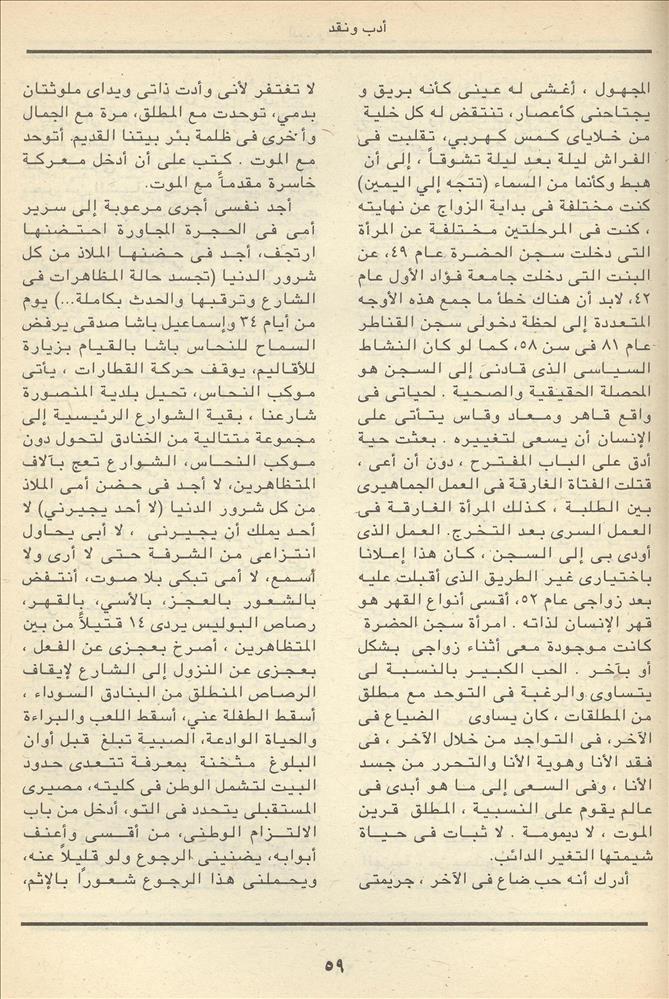 أدب ونقد
المجهول ، أغشى له عينى كأنه بريق و
يجتاحنى كأعصار، تنتقض له كل خلية
من خلاياى كمس كهربي، تقلبت فى
الفراش ليلة بعد ليلة تشوقاً ، إلى أن
هبط وكأنما من السماء (تتجه إلي اليمين)
كنت مختلفة فى بداية الزواج عن نهايته
، كنت فى المرحلتين مختلفة عن المرأة
التى دخلت سجن الحضرة عام ٤٩، عن
البنت التى دخلت جامعة فؤاد الأول عام
٤٢، لابد أن هناك خطأ ما جمع هذه الأوجه
المتعددة إلى لحظة دخولى سجن القناطر
عام ٨١ فى سن ٥٨، كما لو كان النشاط
السياسى الذى قادنى إلى السجن هو
المحصلة الحقيقية والصحية . لحياتى فى
واقع قاهر ومعاد وقاس يتأتى على
الإنسان أن يسعى لتغييره . بعثت حية
أدق على الباب المفترح ، دون أن أعى ،
قتلت الفتاة الغارقة فى العمل الجماهيرى
بين الطلبة ، كذلك المرأة الغارقة فى
العمل السرى بعد التخرج. العمل الذى
أودى بى إلى السجن ، كان هذا إعلانا
باختيارى غير الطريق الذى أقبلت عليه
بعد زواجى عام ٥٢، أقسى أنواع القهر هو
قهر الإنسان لذاته . امرأة سجن الحضرة
كانت موجودة معى أثناء زواجى بشكل
أو بآخر . الحب الكبير بالنسبة لى
يتساوى والرغبة فى التوحد مع مطلق
من المطلقات ، كان يساوى الضياع فى
الآخر، فى التواجد من خلال الآخر ، فى
فقد الأنا وهوية الأنا والتحرر من جسد
الأنا ، وفى السعى إلى ما هو أبدى فى
عالم يقوم على النسبية ، المطلق قرين
الموت ، لا ديمومة . لا ثبات فى حياة
شيمتها التغير الدائب.
أدرك أنه حب ضاع فى الآخر ، جريمتى
لا تغتفر لأنى وأدت ذاتى ويداى ملوثتان
بدمي، توحدت مع المطلق، مرة مع الجمال
وأخرى فى ظلمة بئر بيتنا القديم. أتوحد
مع الموت . كتب على أن أدخل معركة
خاسرة مقدماً مع الموت.
أجد نفسى أجرى مرعوبة إلى سرير
أمى فى الحجرة المجاورة احتضنها
ارتجف، أجد فى حضنها الملاذ من كل
شرور الدنيا (تجسد حالة المظاهرات فى
الشارع وترقبها والحدث بكاملة...) يوم
من أيام ٣٤ وإسماعيل باشا صدقى يرفض
السماح للنحاس باشا بالقيام بزيارة
للأقاليم، يوقف حركة القطارات ، يأتى
موكب النحاس، تحيل بلدية المنصورة
شارعنا ، بقية الشوارع الرئيسية إلى
مجموعة متتالية من الخنادق لتحول دون
موكب النحاس، الشوارع تعج بآلاف
المتظاهرين، لا أجد فى حضن أمى الملاذ
من كل شرور الدنيا (لا أحد يجيرني) لا
أحد يملك أن يجيرنى ، لا أبى يحاول
انتزاعى من الشرفة حتى لا أرى ولا
أسمع، لا أمى تبكى بلا صوت، أنتفض
بالشعور بالعجز، بالأسي، بالقهر،
رصاص البوليس يردى ١٤ قتيلاً من بين
المتظاهرين ، أصرخ بعجزى عن الفعل ،
بعجزى عن النزول إلى الشارع لإيقاف
الرصاص المنطلق من البنادق السوداء ،
أسقط الطفلة عني، أسقط اللعب والبراءة
والحياة الوادعة، الصبية تبلغ قبل أوان
البلوغ مثخنة بمعرفة تتعدى حدود
البيت لتشمل الوطن فى كليته، مصيرى
المستقبلى يتحدد فى التو، أدخل من باب
الالتزام الوطني، من أقسى وأعنف
أبوابه، يضنينى الرجوع ولو قليلاً عنه،
ويحملنى هذا الرجوع شعورا بالإثم،
٥٩